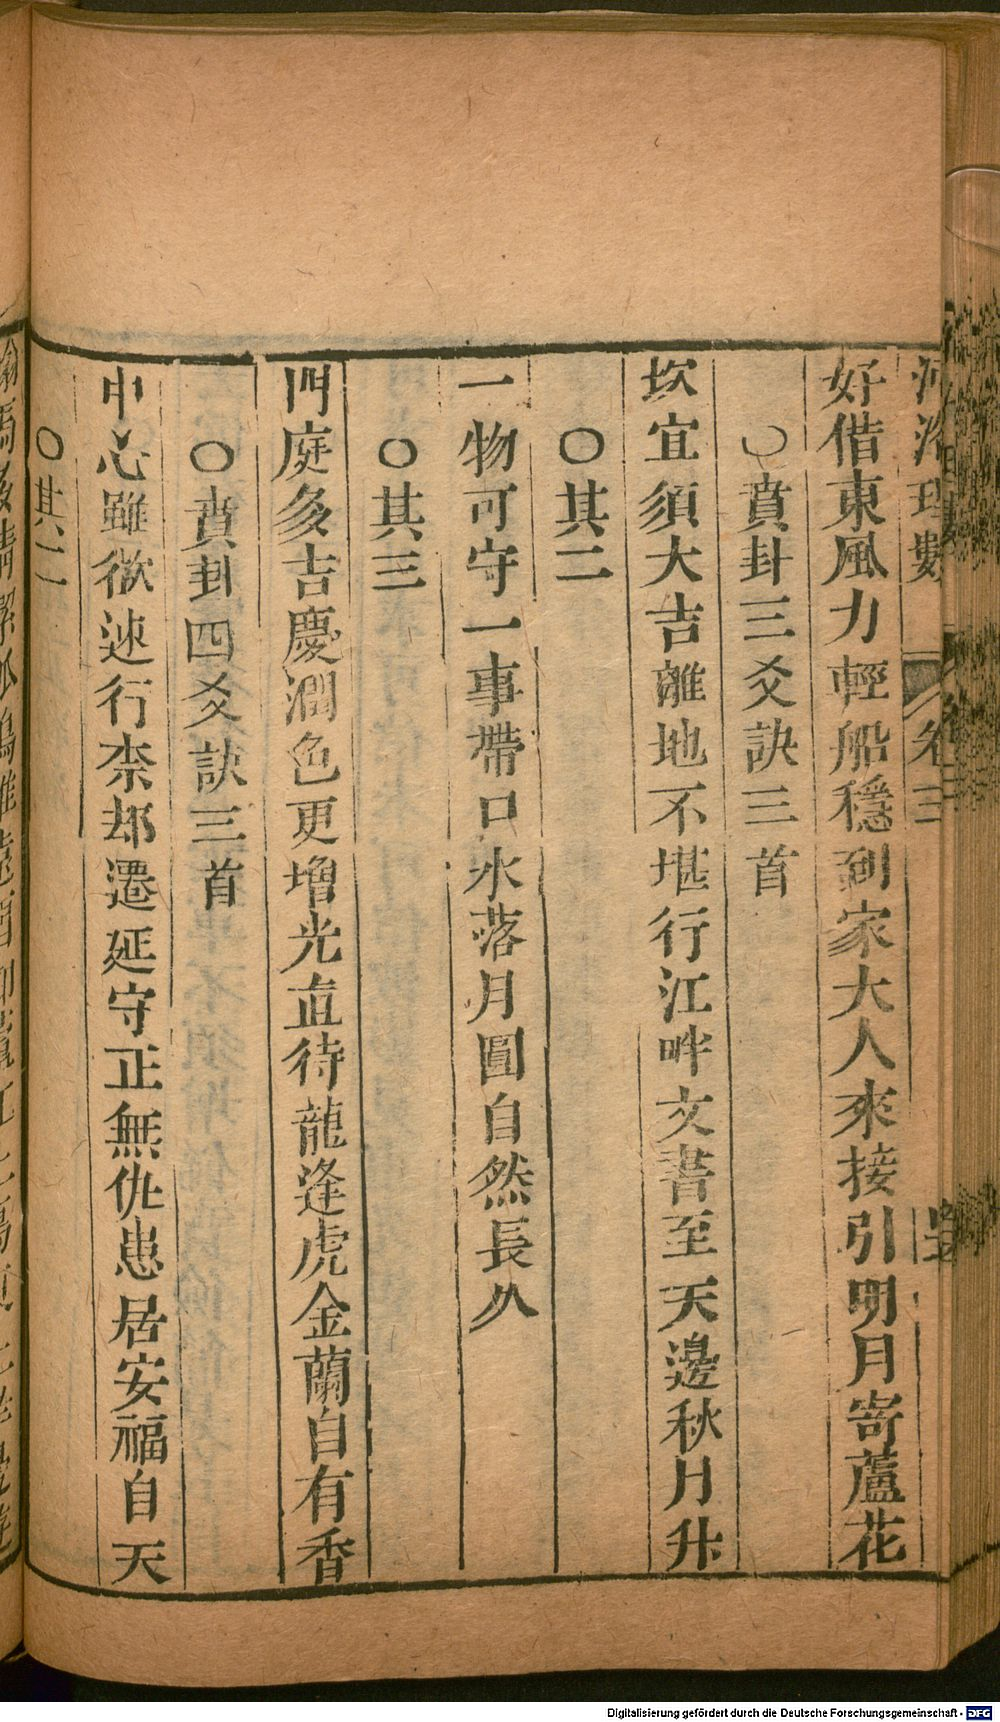 河洛理數
卷三
好借東風力輕船穩到家大人來接引明月寄蘆花
○賁卦三爻訣三首
坎宜須大吉離地不堪行江畔文書至天邊秋月升
○其二
一物可守一事帶口水落月圓自然長久
○其三
門庭多吉慶潤色更增光直待龍逢虎金蘭自有香
○賁卦四爻訣三首
中心雖欲速行柰却遷延守正無仇患居安福自天
○其二
Digitalisierung gefördert durch die Deutsche Forschungsgemeinschaft - DFG